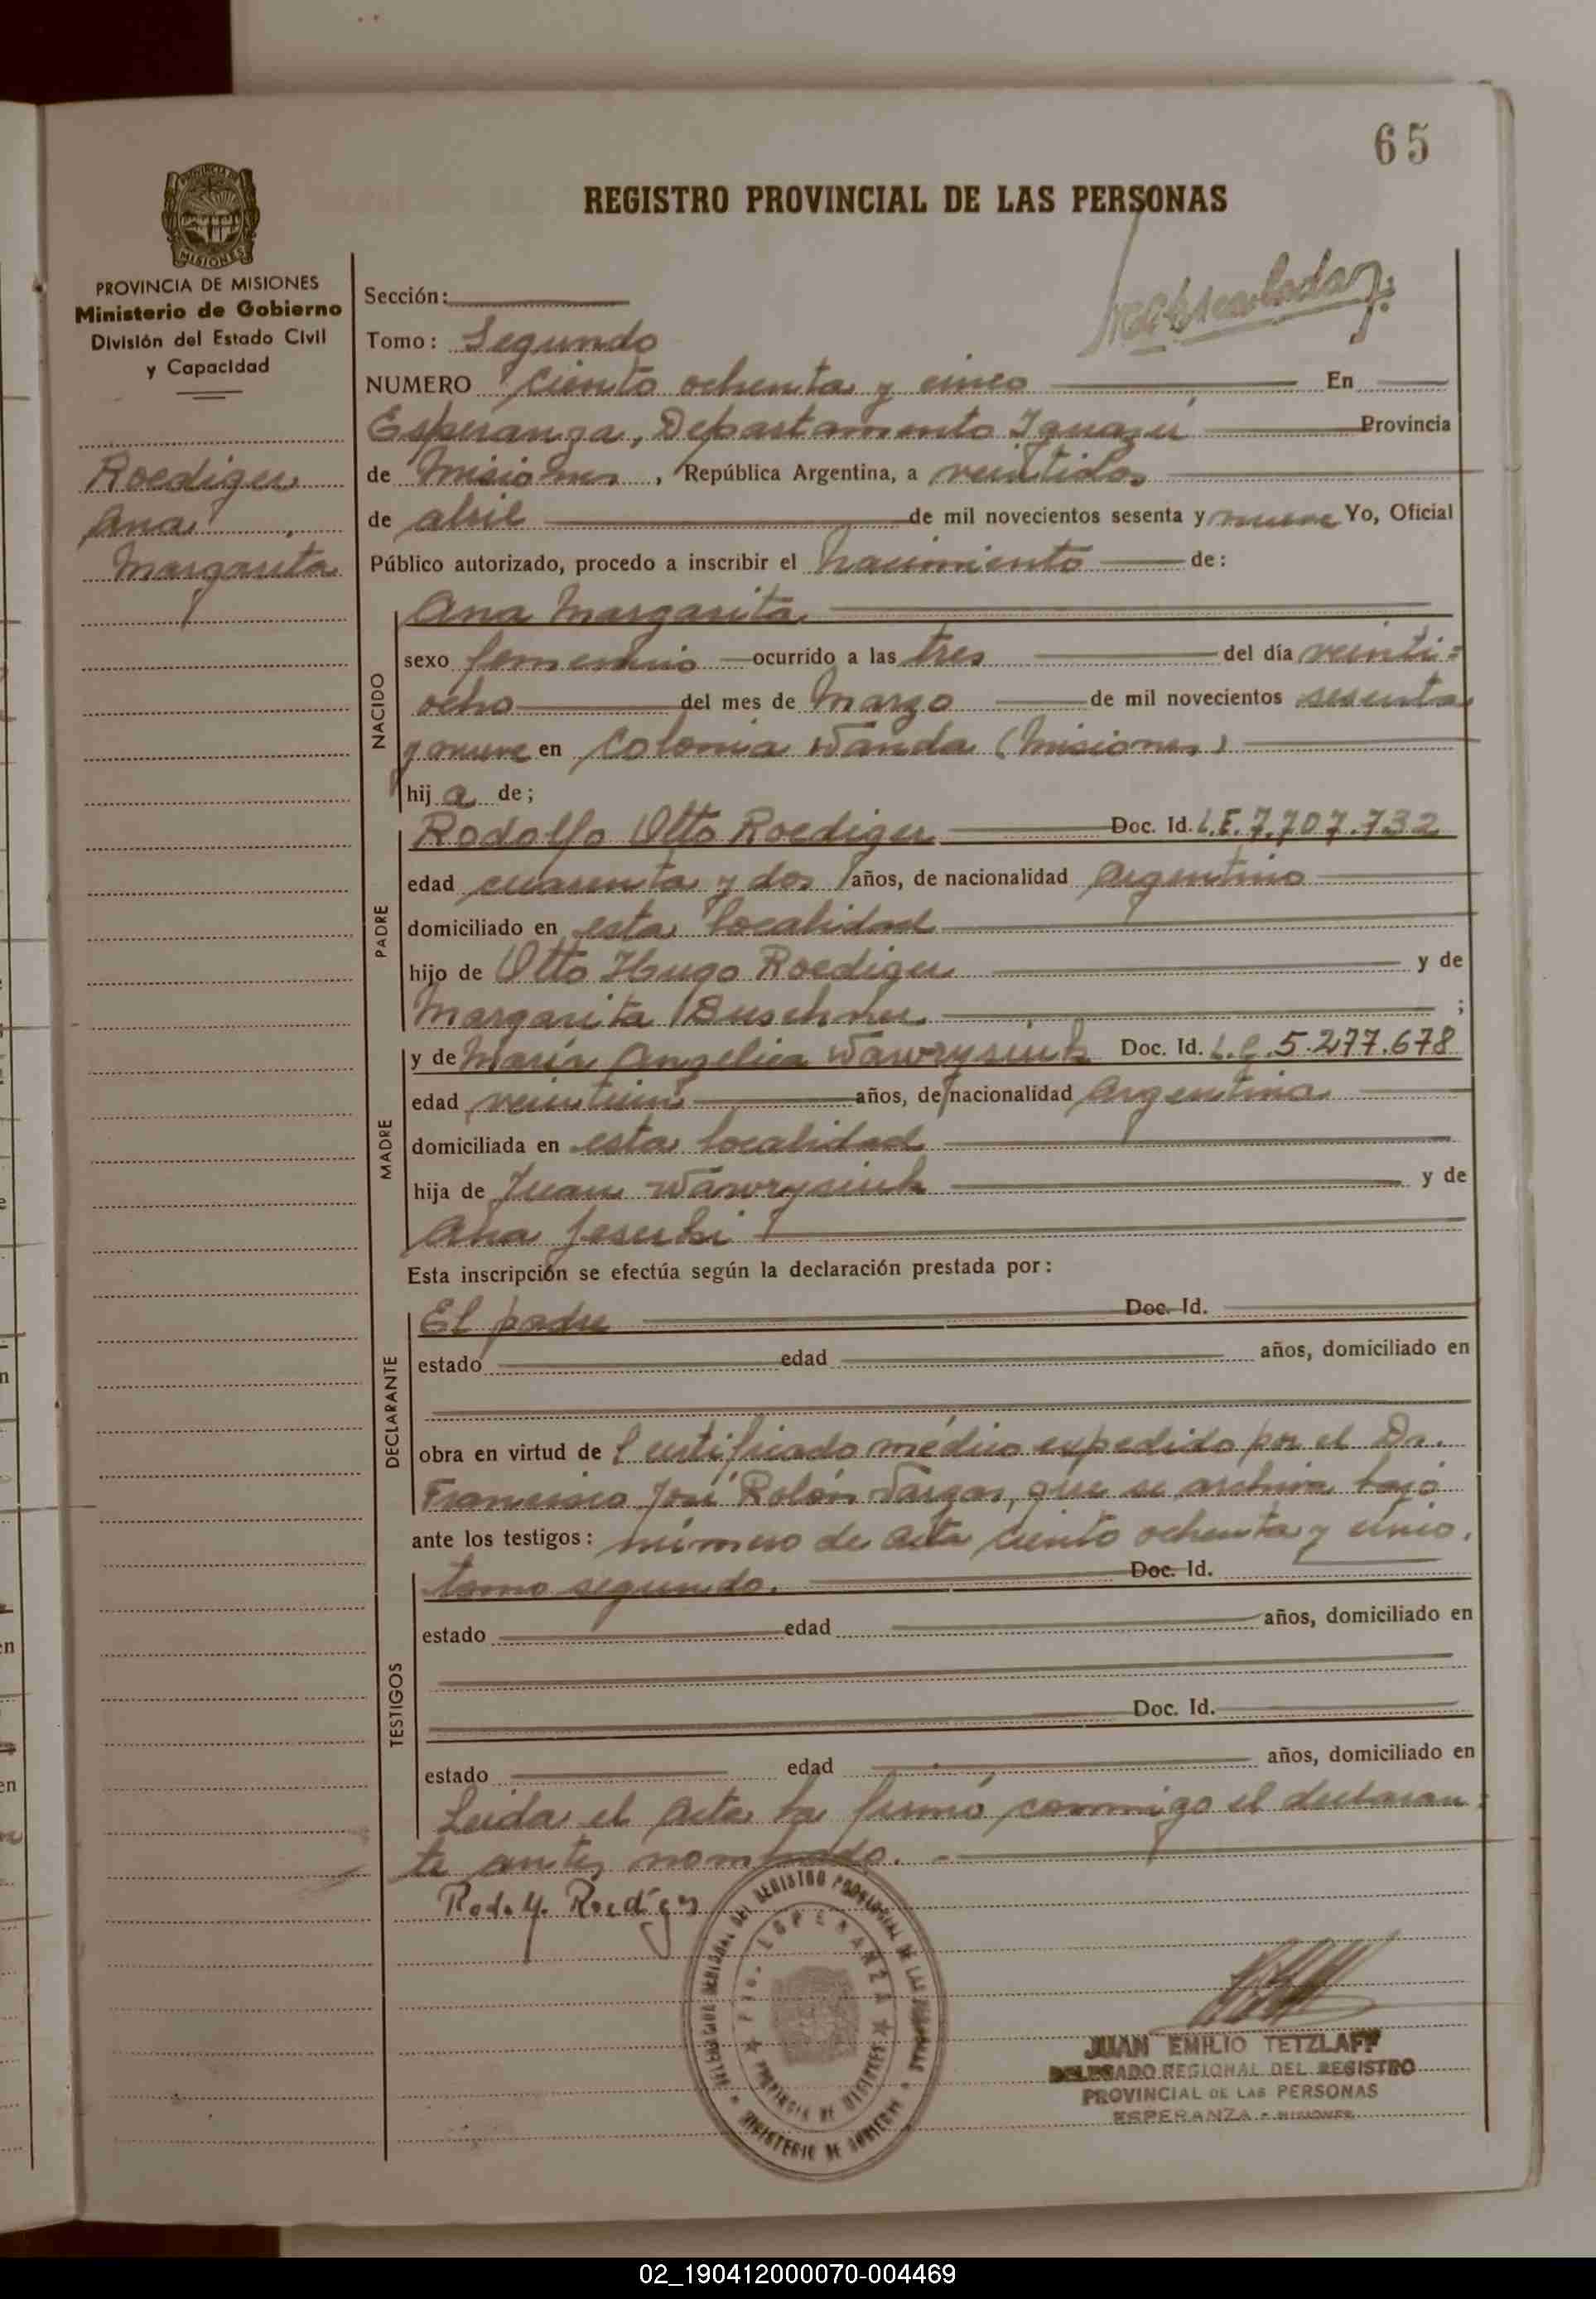 65
REGISTRO PROVINCIAL DE LAS PERSONAS
MISIONES
PROVINCIA DE MISIONES
Ministerio de Gobierno
División del Estado Civil
y Capacidad
Roediger
Ana
Margarita
Sección:
Tomo: Segundo
NUMERO ciento ochenta y cinco En
Esperanza, Departamento Iguazú Provincia
de Misiones, República Argentina, a veintidos
de abril de mil novecientos sesenta y nueve Yo, Oficial
Público autorizado, procedo a inscribir el nacimiento de:
Ana Margarita
NACIDO
sexo femenino ocurrido a las tres del día veinti=
ocho del mes de Marzo de mil novecientos sesenta
y nueve en Colonia Wanda (Misiones)
hij a de;
PADRE
Rodolfo Otto Roediger Doc. Id. L.E. 7.707.732
edad cuarenta y dos años, de nacionalidad Argentino
domiciliado en esta localidad
hijo de Otto Hugo Roediger y de
Margarita ;
MADRE
y de María Angelica Wawrysiuk Doc. Id. L.C. 5.277.678
edad veintiún años, de nacionalidad Argentina
domiciliada en esta localidad
hija de Juan Wawrysiuk y de
Ana
Esta inscripción se efectúa según la declaración prestada por:
DECLARANTE
El padre Doc. Id.
estado edad años, domiciliado en
obra en virtud de Certificado médico expedido por el Dr.
Francisco José Rolón Vargas, que se archiva bajo
ante los testigos: número de acta ciento ochenta y cinco.
tomo segundo. Doc. Id.
TESTIGOS
estado edad años, domiciliado en
Doc. Id.
estado edad años, domiciliado en
Leida el acta la firmó conmigo el declaran=
te antes nombrado.
Rod. Roediger
ESPERANZA
PROVINCIA DE MISIONES
MINISTERIO DE GOBIERNO
JUAN EMILIO TETZLAFF
DELEGADO REGIONAL DEL REGISTRO
PROVINCIAL DE LAS PERSONAS
ESPERANZA - MISIONES
02_190412000070-004469